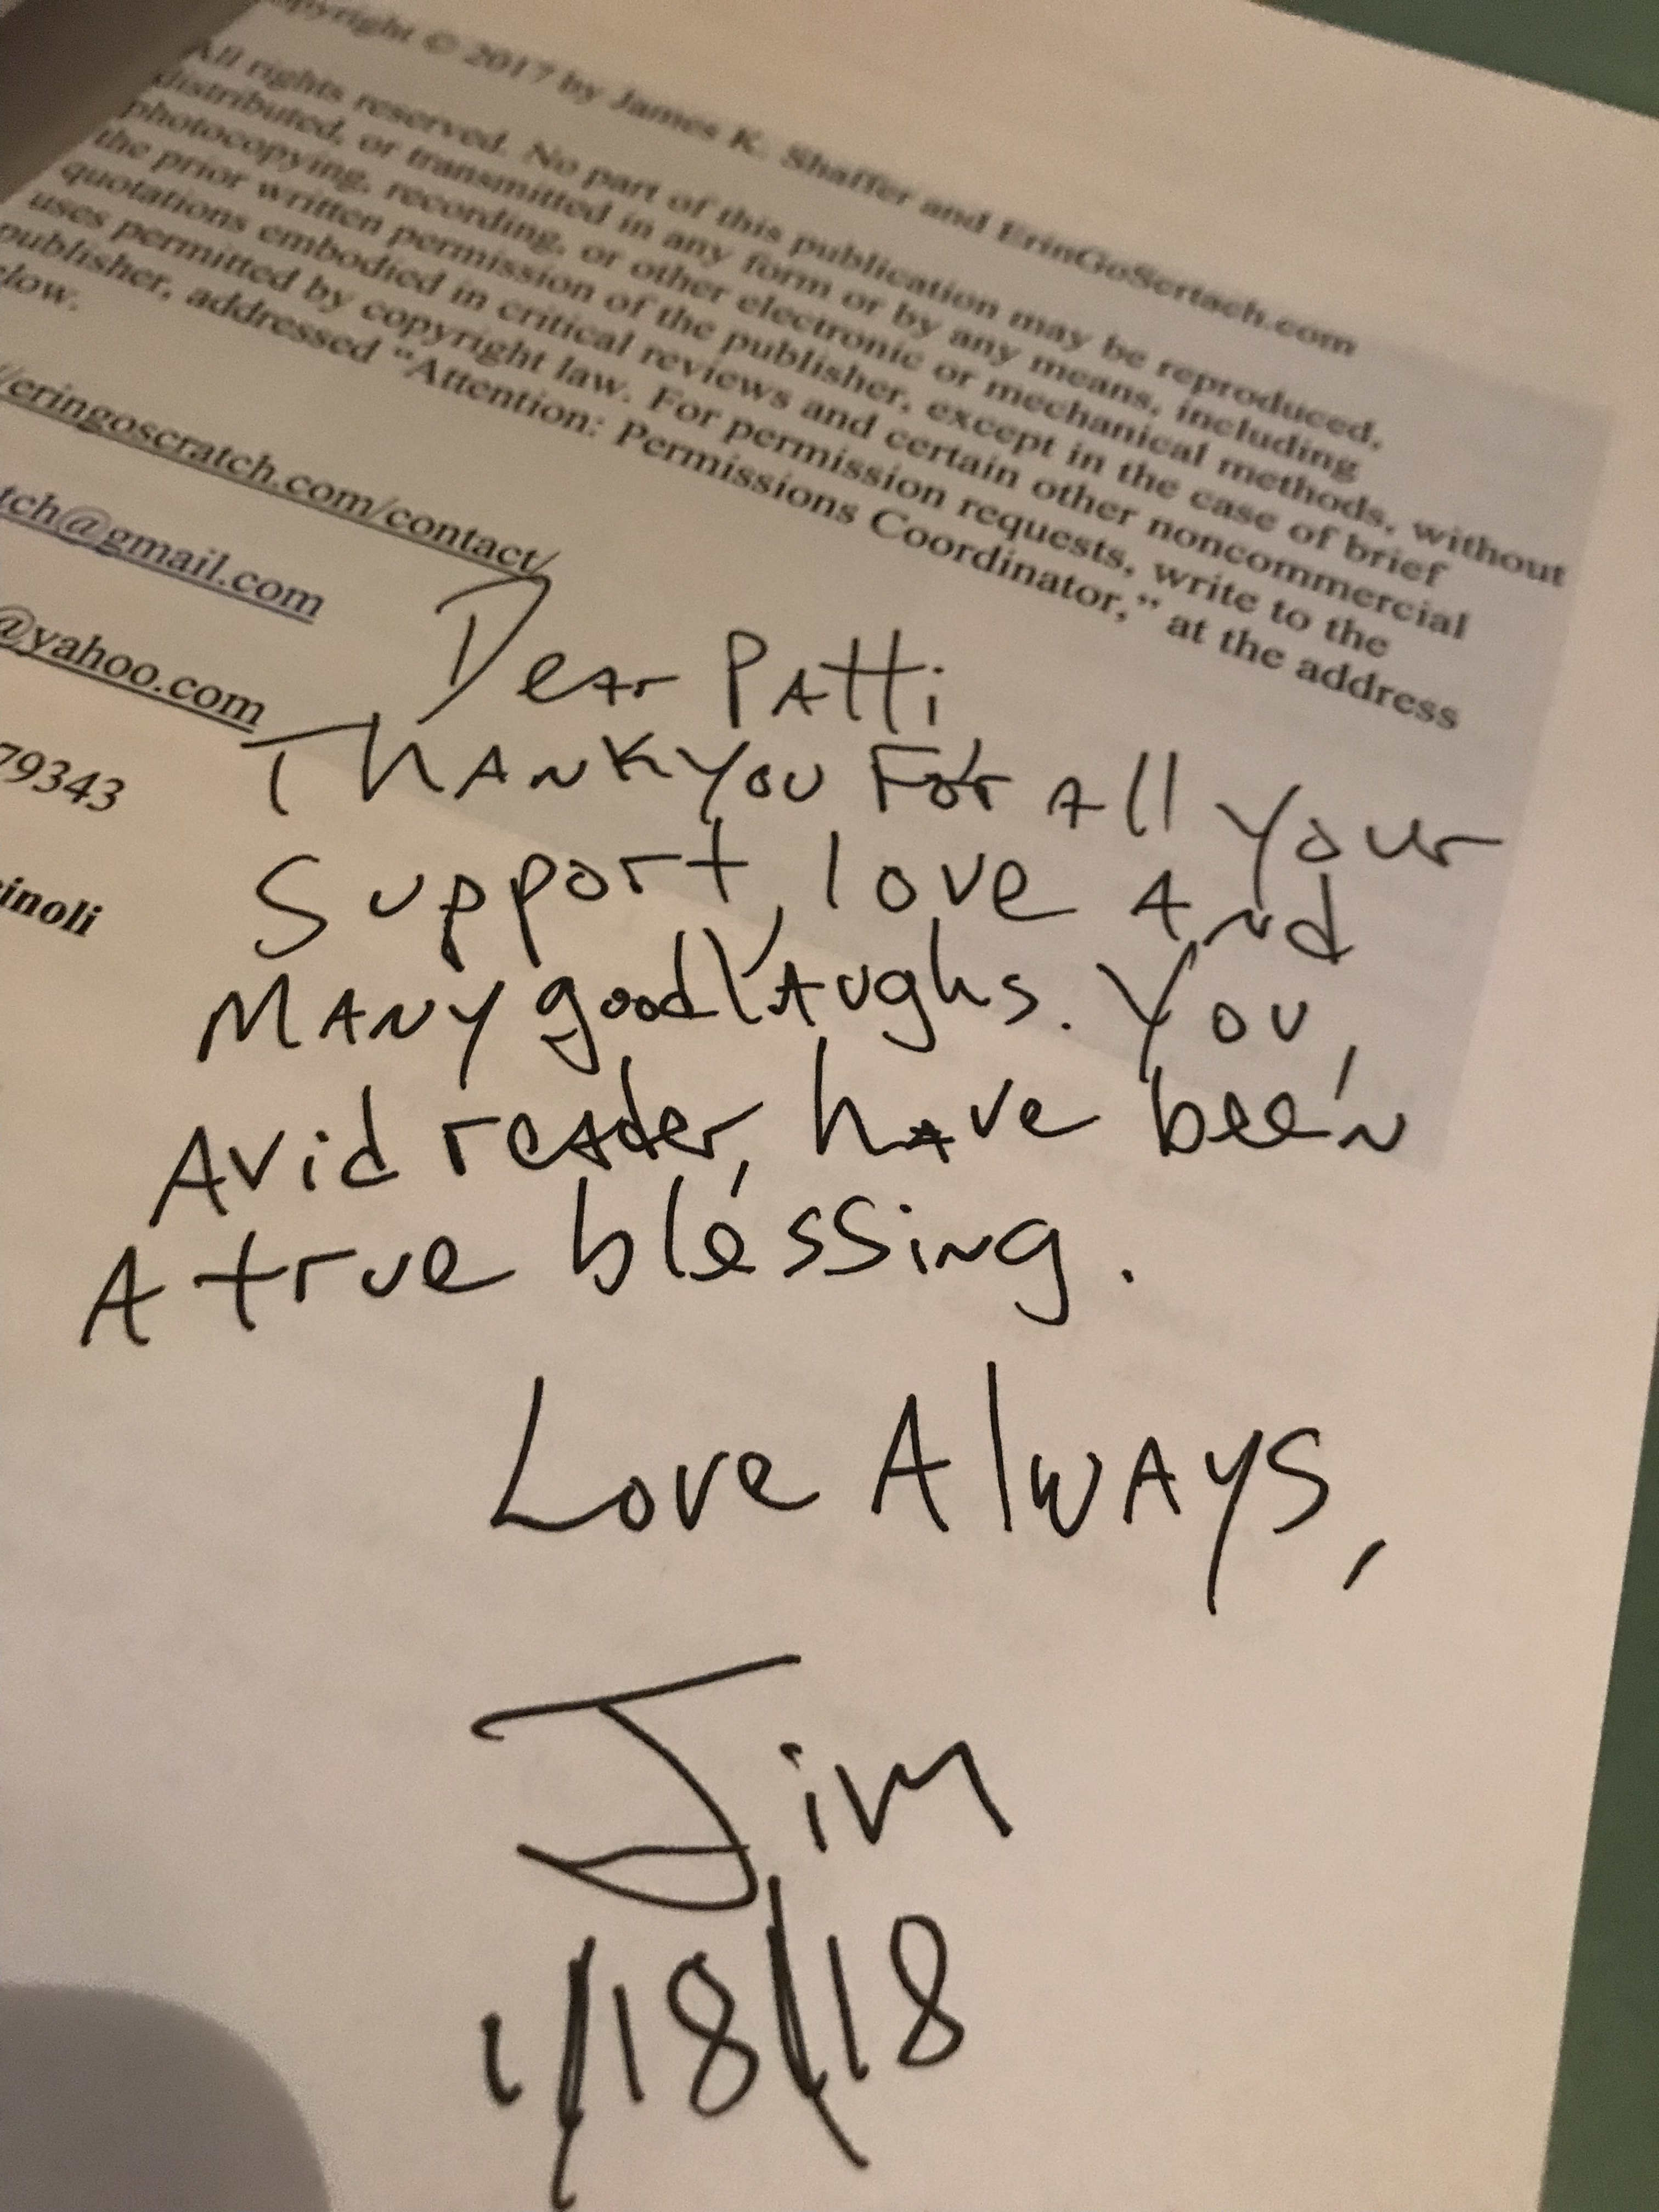 Copyright © 2017 by James K. Shaffer and ErinGoScrtach.com
All rights reserved. No part of this publication may be reproduced,
distributed, or transmitted in any form or by any means, including
photocopying, recording, or other electronic or mechanical methods, without
the prior written permission of the publisher, except in the case of brief
quotations embodied in critical reviews and certain other noncommercial
uses permitted by copyright law. For permission requests, write to the
publisher, addressed “Attention: Permissions Coordinator,” at the address
low.
//eringoscratch.com/contact/
tch@gmail.com
@yahoo.com
79343
inoli
Dear Patti
Thank you For All your
Support, love And
MANY good laughs. You,
Avid reader, have been
A true blessing.
Love Always,
Jim
1/18/18